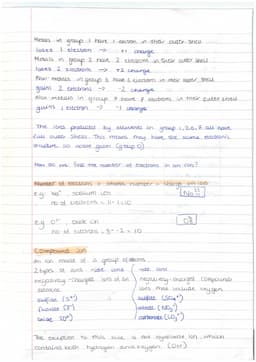 Metals in group 1 have 1 electron in their outer shell
loses 1 electron → +1 charge
Metals in group 2 have 2 electrons in their outer shell
loses 2 electrons → +2 charge
Non-metals in group 6 have 6 electrons in their outer shell
gains 2 electrons → -2 charge
Non-metals in group 7 have 7 electrons in their outer shell
gains 1 electron → -1 charge
The ions produced by elements in group 1,2,6,7 all have
full outer shells. This means they have the same electronic
structure as noble gases (group 0)
How do we find the number of electrons in an ion?
Number of electrons = atomic number - charge on ion
e.g. Na⁺ sodium ion
no of electrons = 11-1=10
e.g. O²⁻, oxide ion
no of electrons = 8--2=10
Compound ion
An ion made of a group of atoms
2 types of and -ide and -ate ions
negatively-charged ions of an
element
negatively-charged compound
ions that include oxygen
sulfide (S²⁻)
sulfate (SO₄²⁻)
nitrate (NO₃⁻)
oxide (O²⁻)
carbonate (CO₃²⁻)
The exception to this rule is the hydroxide ion, which
contains both hydrogen and oxygen (OH⁻)